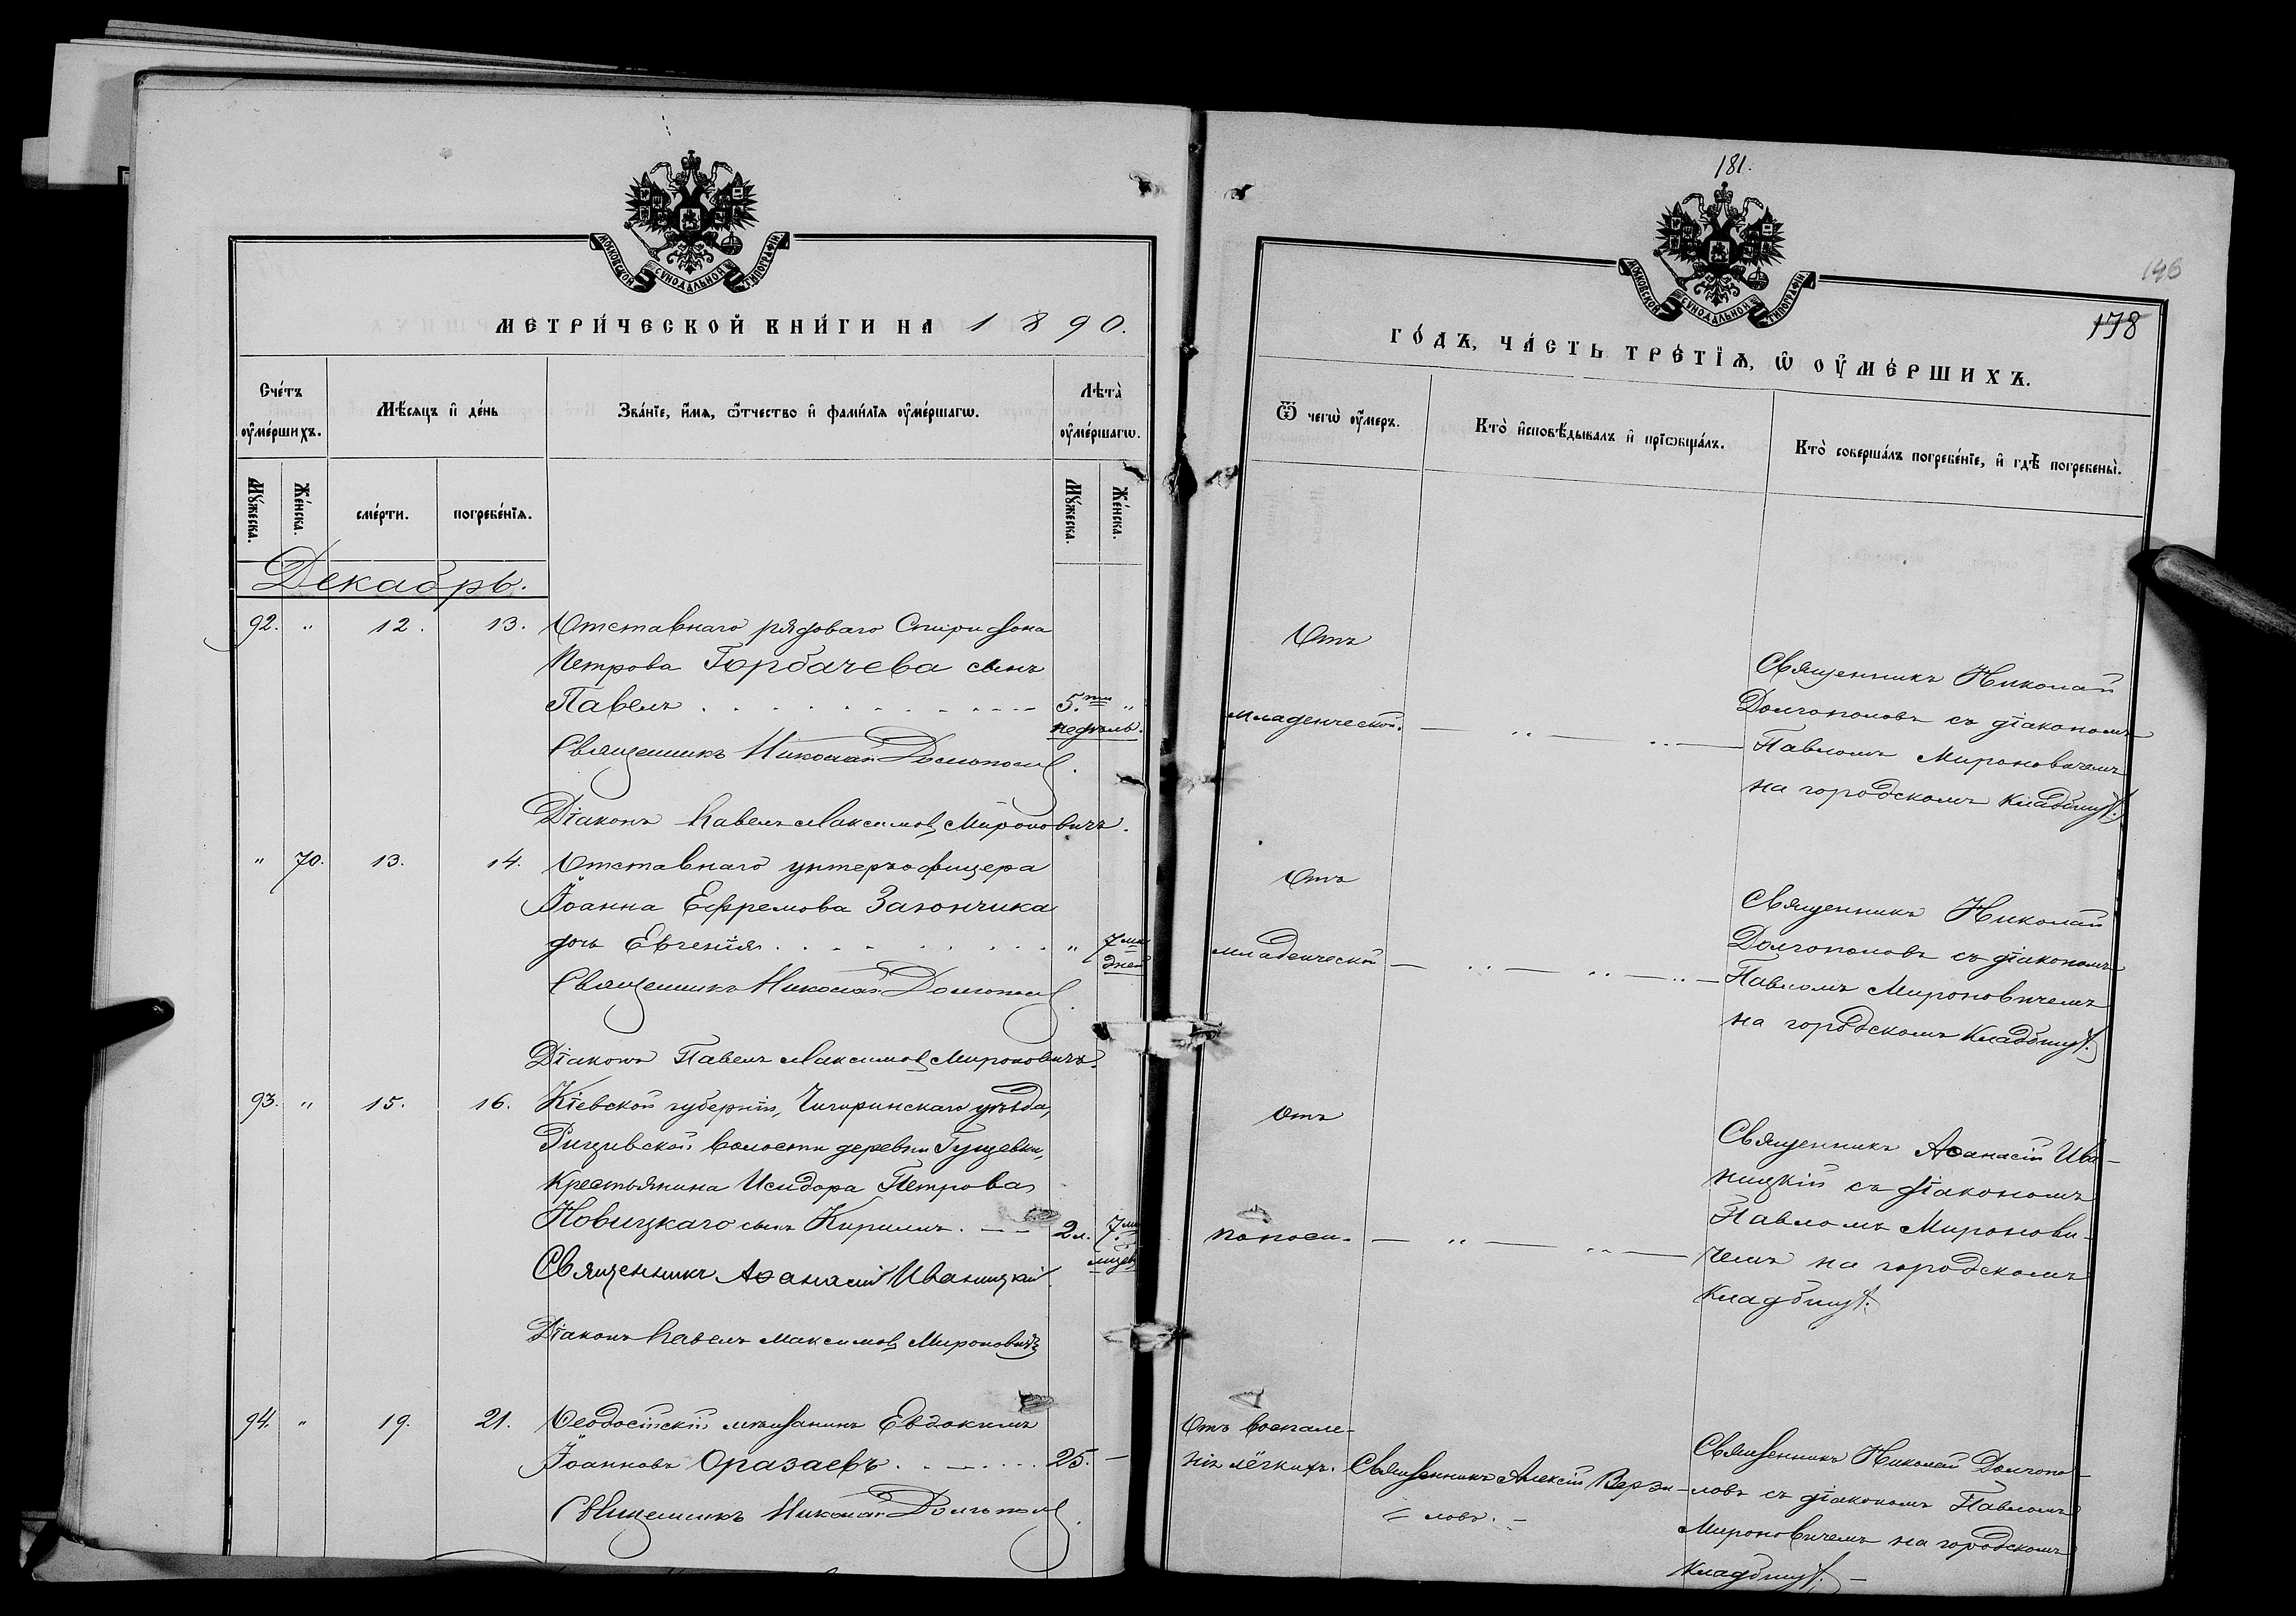 МОСКОВСКОЙ СУНОДАЛЬНОЙ ТИПОГРАФІИ
МЕТРИ́ЧЕСКОЙ КНИ́ГИ НА 1890.
Сче́тъ оу҆ме́ршихъ.
Мѣ́сяцъ и҆ де́нь
Зва́нїе, и҆́мѧ, ѿ́тчество и҆ фами́лїѧ оу҆ме́ршагѡ.
Лѣ́та̀ оу҆ме́ршагѡ.
Мꙋ́жеска.
Же́нска.
сме́рти.
погребе́нїѧ.
Мꙋ́жеска.
Же́нска.
Декабрь.
92. " 12. 13. Отставнаго рядоваго Спиридона
Петрова Горбачева сынъ
Павелъ 5.ти "
недѣль.
Священникъ Николай Долгополовъ
Діаконъ Павелъ Максимовъ Мироновичъ.
" 70. 13. 14. Отставнаго унтеръ офицера
Іоанна Ефремова Загончика
дочь Евгенія " 7ми
дней
Священникъ Николай Долгополовъ
Діаконъ Павелъ Максимовъ Мироновичъ.
93. " 15. 16. Кіевской губерніи, Чигиринскаго уѣзда,
волости деревни
крестьянина Исидора Петрова
Новицкаго сынъ Кириллъ. 2 л. 7.ми
мѣсяц
Священникъ Аѳанасій Иваницкій
Діаконъ Павелъ Максимовъ Мироновичъ
94. " 19. 21. Ѳеодосійскій мѣщанинъ Евдокимъ
Іоанновъ Оразаевъ 25. —
Священникъ Николай Долгополовъ
181.
МОСКОВСКОЙ СУНОДАЛЬНОЙ ТИПОГРАФІИ
146
178
ГО́ДЪ, ЧА́СТЬ ТРЕ́ТЇѦ, Ѡ҆ ОУ҆МЕ́РШИХЪ.
Ѿ чегѡ̀ оу҆́меръ.
Кто̀ и҆сповѣ́дывалъ и҆ прїѡбща́лъ.
Кто̀ соверша́лъ погребе́нїе, и҆ гдѣ̀ погребены̀.
Отъ
младенческой. — " — " —
Священникъ Николай
Долгополовъ съ діакономъ
Павломъ Мироновичемъ
на городскомъ кладбищѣ.
Отъ
младенческой — " — " — " —
Священникъ Николай
Долгополовъ съ діакономъ
Павломъ Мироновичемъ
на городскомъ кладбищѣ.
Отъ
поноси. — " — " —
Священникъ Аѳанасій Ива-
ницкій съ діакономъ
Павломъ Миронови-
чемъ на городскомъ
кладбищѣ.
Отъ воспале-
нія лёгкихъ. Священникъ Алексій Верзи-
= ловъ. —
Священникъ Николай Долгопо-
ловъ съ діакономъ Павломъ
Мироновичемъ на городскомъ
кладбищѣ. —